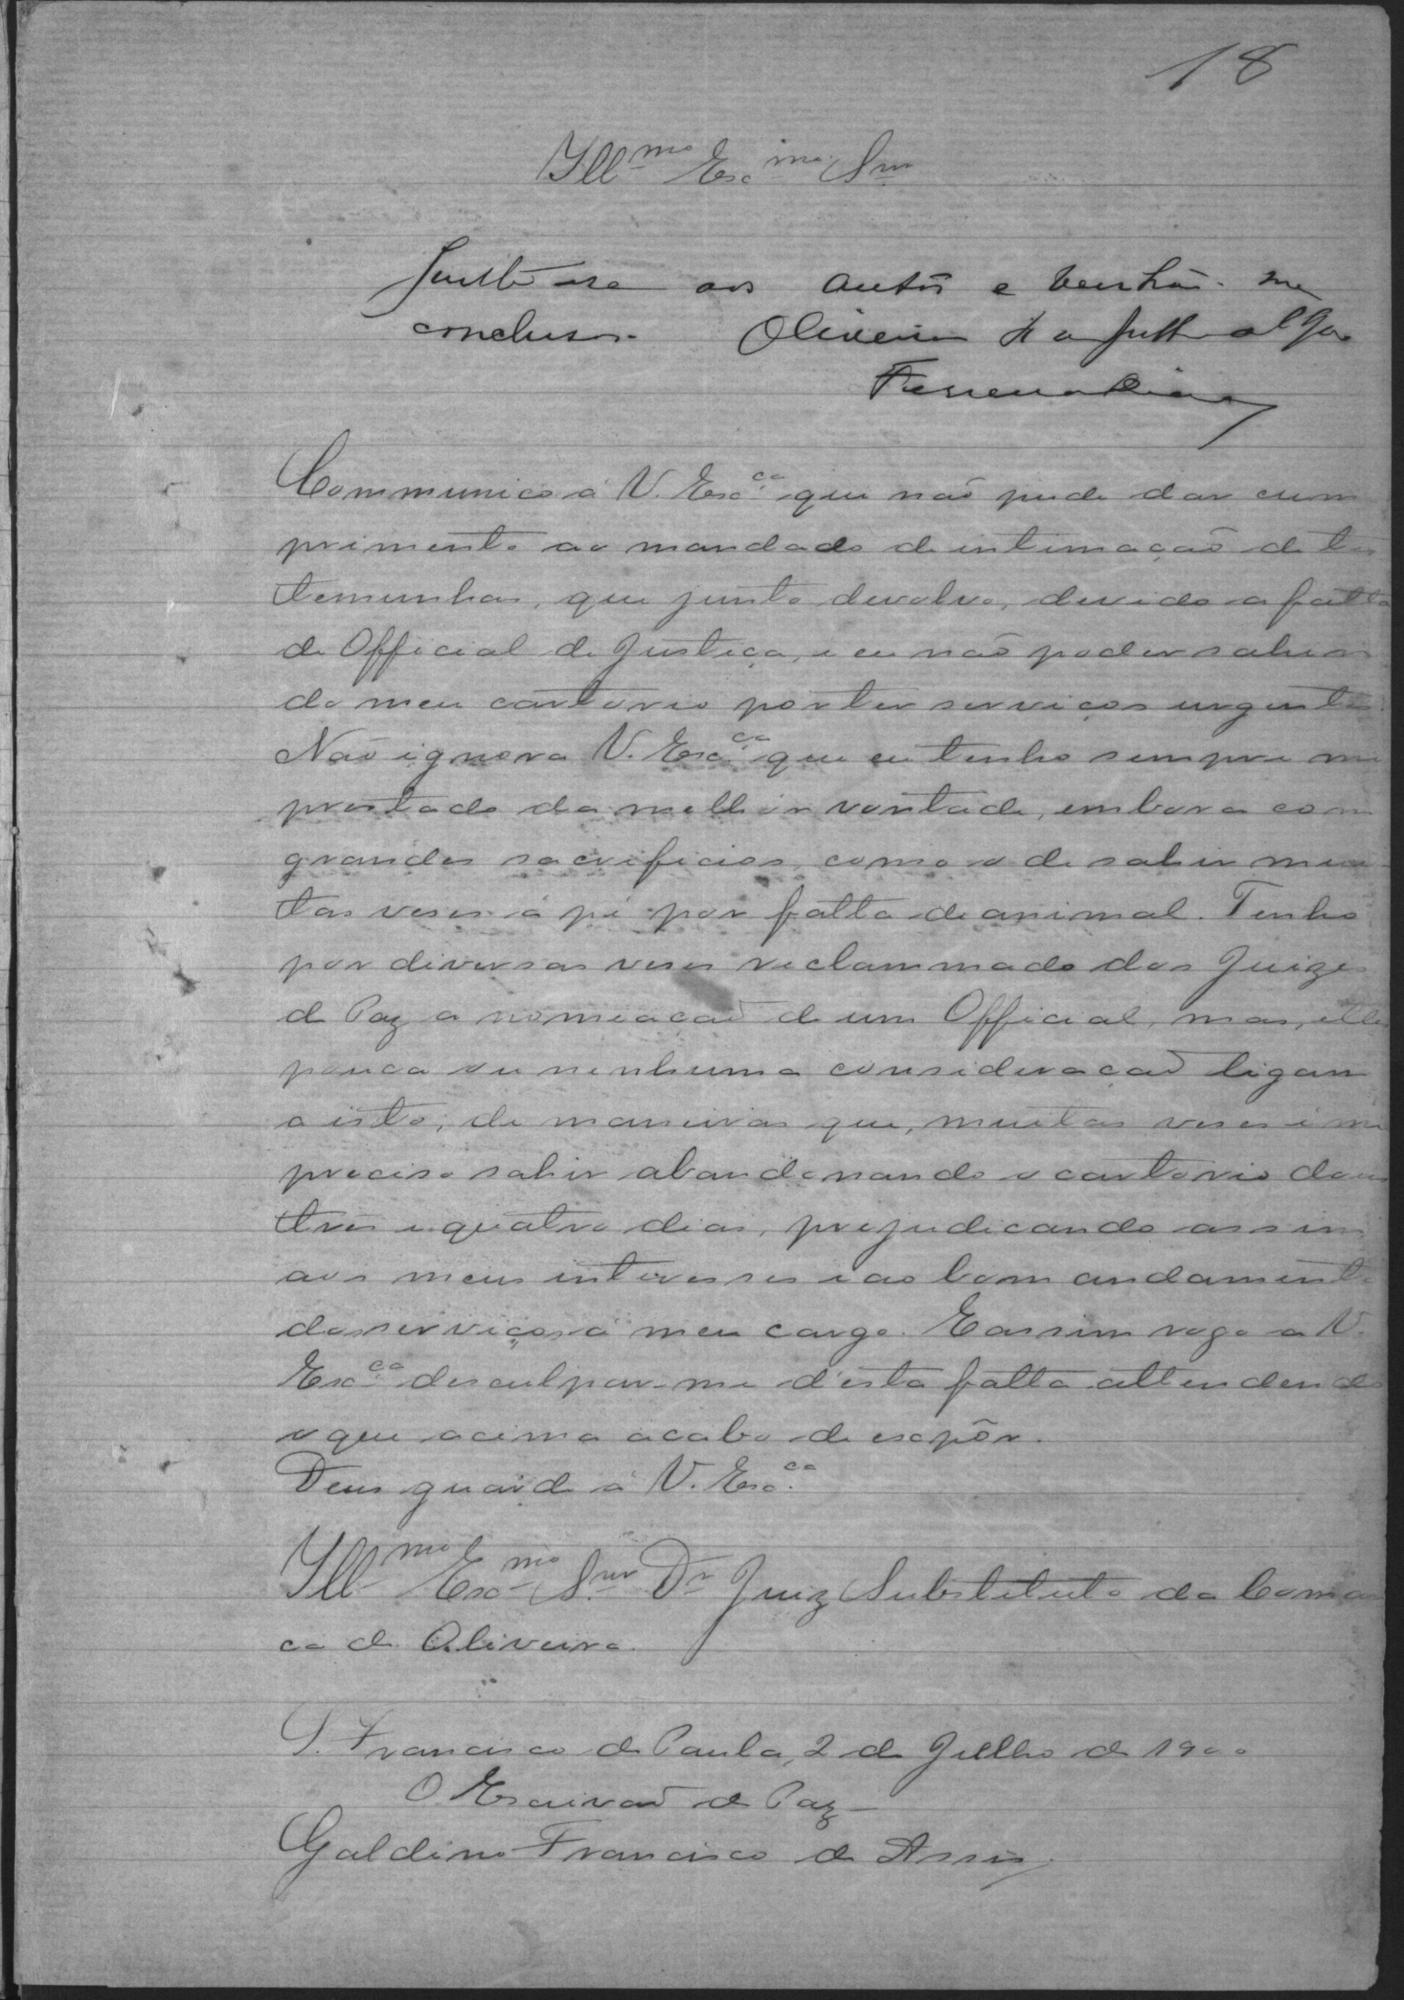 18
Ill.mo Exc.mo Snr
Junte-se aos autos e venhão-me
conclusos. Oliveira
Ferreira
Communico á V. Exc.ca que não pude dar cum
primento ao mandado de intimação de tes
temunhas, que junto devolvo, devido a falta
de Official de Justiça, e eu não poder sahir
do meu cartorio por ter serviços urgentes.
Não ignora V. Exc.ca que eu tenho sempre me
prestado da melhor vontade, embora com
grandes sacrificios, como o de sahir mui
tas veses á pé por falta de animal. Tenho
por diversas veses reclammado dos Juizes
de Paz a nomeação de um Official, mas, elles
pouca ou nenhuma consideração ligam
a isto; de maneiras que, muitas veses é me
preciso sahir abandonando o cartorio dous
tres e quatro dias, prejudicando assim
aos meus interesses e ao bom andamento
dos serviços á meu cargo. E assim rogo a V.
Exc.ca desculpar-me d'esta falta attendendo
o que acima acabo de expôr.
Deus guarde á V. Exc.ca
Ill.mo Exc.mo Snr. Dr Juiz Substituto da Comar
ca de Oliveira.
S. Francisco de Paula, 2 de Julho de 1900
O Escrivão de Paz
Galdino Francisco de Assis